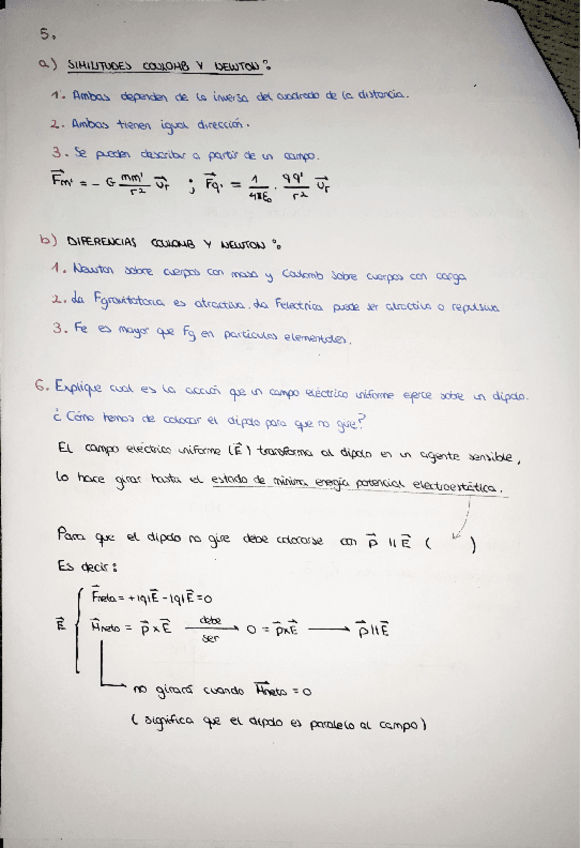 5.
a) SIMILITUDES COULOMB Y NEWTON:
1. Ambas dependen de la inversa del cuadrado de la distancia.
2. Ambas tienen igual dirección.
3. Se pueden describir a partir de un campo.
F⃗m' = - G mm'/r² u⃗r ; F⃗q' = 1/4πε₀ · qq'/r² u⃗r
b) DIFERENCIAS COULOMB Y NEWTON:
1. Newton sobre cuerpos con masa y Coulomb sobre cuerpos con carga
2. La Fgravitatoria es atractiva. La Felectrica puede ser atractiva o repulsiva
3. Fe es mayor que Fg en particulas elementales.
6. Explique cual es la acción que un campo eléctrico uniforme ejerce sobre un dipolo.
¿Cómo hemos de colocar el dipolo para que no gire?
El campo eléctrico uniforme (E⃗) transforma al dipolo en un agente sensible,
lo hace girar hasta el estado de mínima energía potencial electroestática.
Para que el dipolo no gire debe colocarse con p⃗ || E⃗ ( )
Es decir:
F⃗neta = +|q|E⃗ - |q|E⃗ = 0
E⃗ { M⃗neto = p⃗ x E⃗ debe ser → 0 = p⃗xE⃗ → p⃗ || E⃗
no girará cuando M⃗neto = 0
( significa que el dipolo es paralelo al campo)